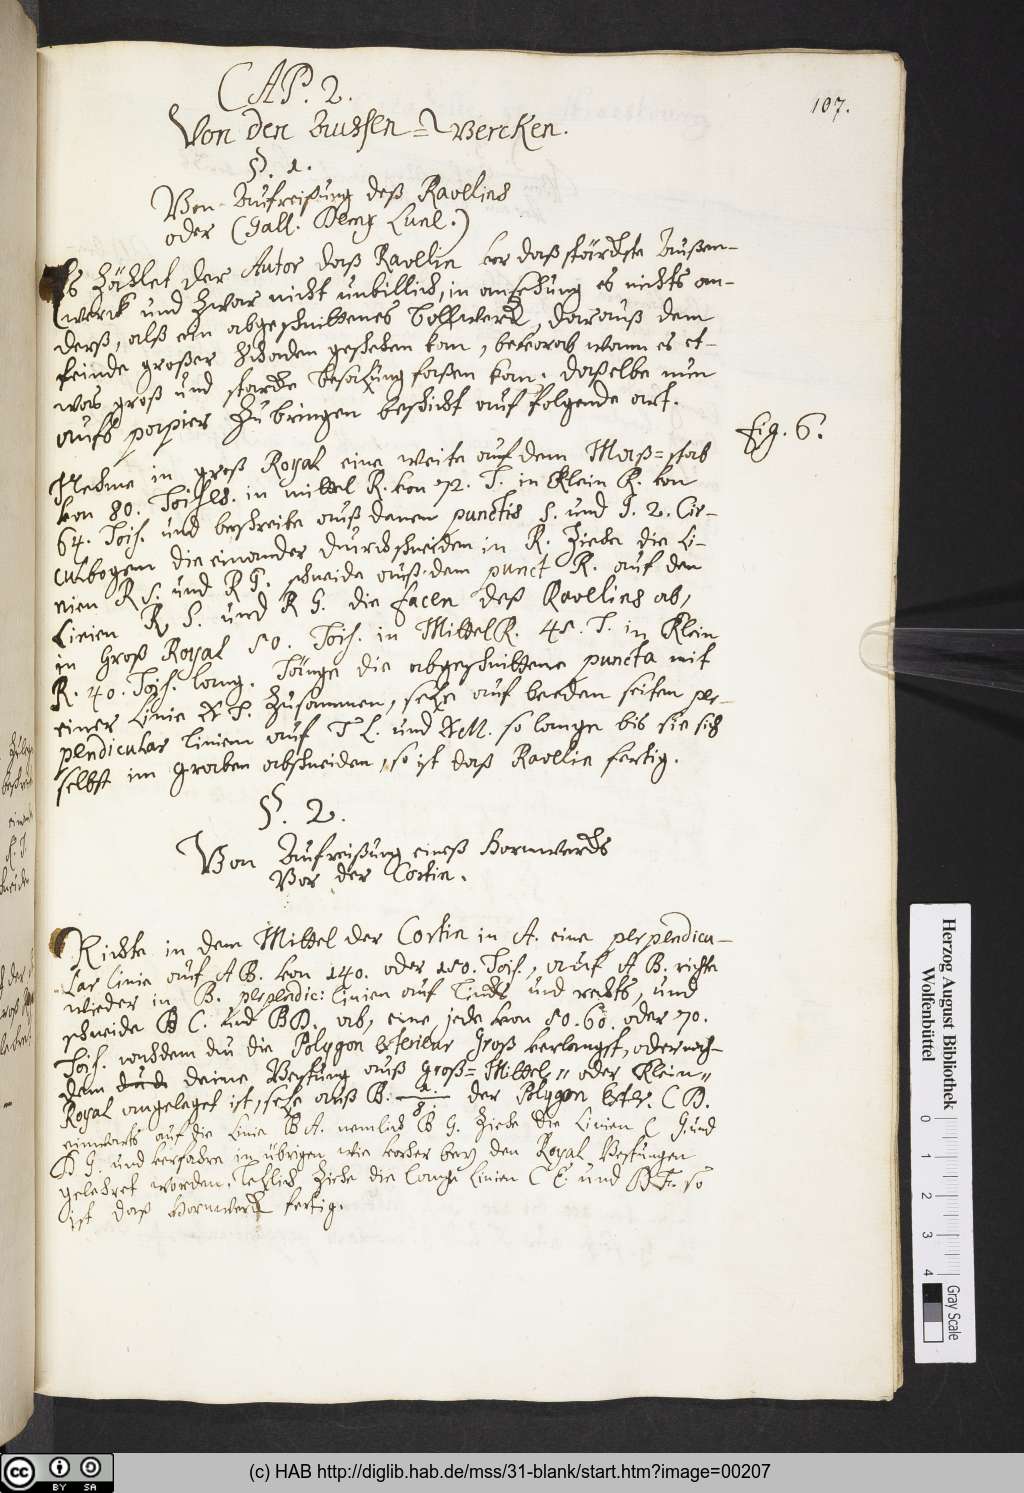 107.
CAP. 2.
Von den Aussen=Wercken.
§. 1.
Von Aufreißung deß Ravelins
oder (Gall. Demy Lune.)
Es hält der Autor daß Ravelin vor daß stärckste Außen-
werck und zwar nicht unbillich, in ansehung es nichts an-
derß, alß ein abgeschnittenes Bollwerck, darauß dem
feinde großer schaden geschehen kan, bevorab wann es et-
was groß und starcke besatzung faßen kan. Daßelbe nun
aufs papier zu bringen beschicht auf folgende art.
fig. 6.
Nehme in groß Royal eine weite auf dem Maß=stab
von 80. Toises. in mittel R. von 72. T. in Klein R. von
64. Tois. und beschreibe auß denen punctis S. und T. 2. Cir-
culbogen die einander durchschneiden in R. Ziehe die Li-
nien R S. und R T. schneide auß dem punct R. auf den
Linien R S. und R T. die facen deß Ravelins ab,
in Groß Royal 50. Tois. in Mittel R. 45. T. in Klein
R. 40. Tois. lang. Hänge die abgeschnittene puncta mit
einer Linie zusammen, setze auf beeden seiten per-
pendicular linien auf T L. und M. so lange bis sie sich
selbst im graben abschneiden, so ist daß Ravelin fertig.
§. 2.
Von Aufreißung eineß Hornwercks
Vor der Cortin.
Richte in dem Mittel der Cortin in A. eine perpendicu-
lar linie auf A B. von 140. oder 150. Tois, auf A B. richte
wieder in B. perpendic: linien auf lincks und rechts, und
schneide B C. und B D. ab, eine jede von 50. 60. oder 70.
Tois. nachdem du die Polygon exterieur Groß verlangst, oder nach-
dem deine Vestung auß Groß= Mittel„ oder Klein„
Royal angeleget ist, setze auß B. 1/8. der Polygon Exter. C D.
einwarts auf die Linie B A. nemlich B G. Ziehe die Linien C G. und
D G. und verfahre im übrigen wie vorher bey den Royal Vestungen
gelehret worden. letzlich ziehe die lange Linien C E. und D F. so
ist daß Hornwerck fertig.
Herzog August Bibliothek
Wolfenbüttel
0 1 2 3 4
Gray Scale
cc BY SA
(c) HAB http://diglib.hab.de/mss/31-blank/start.htm?image=00207